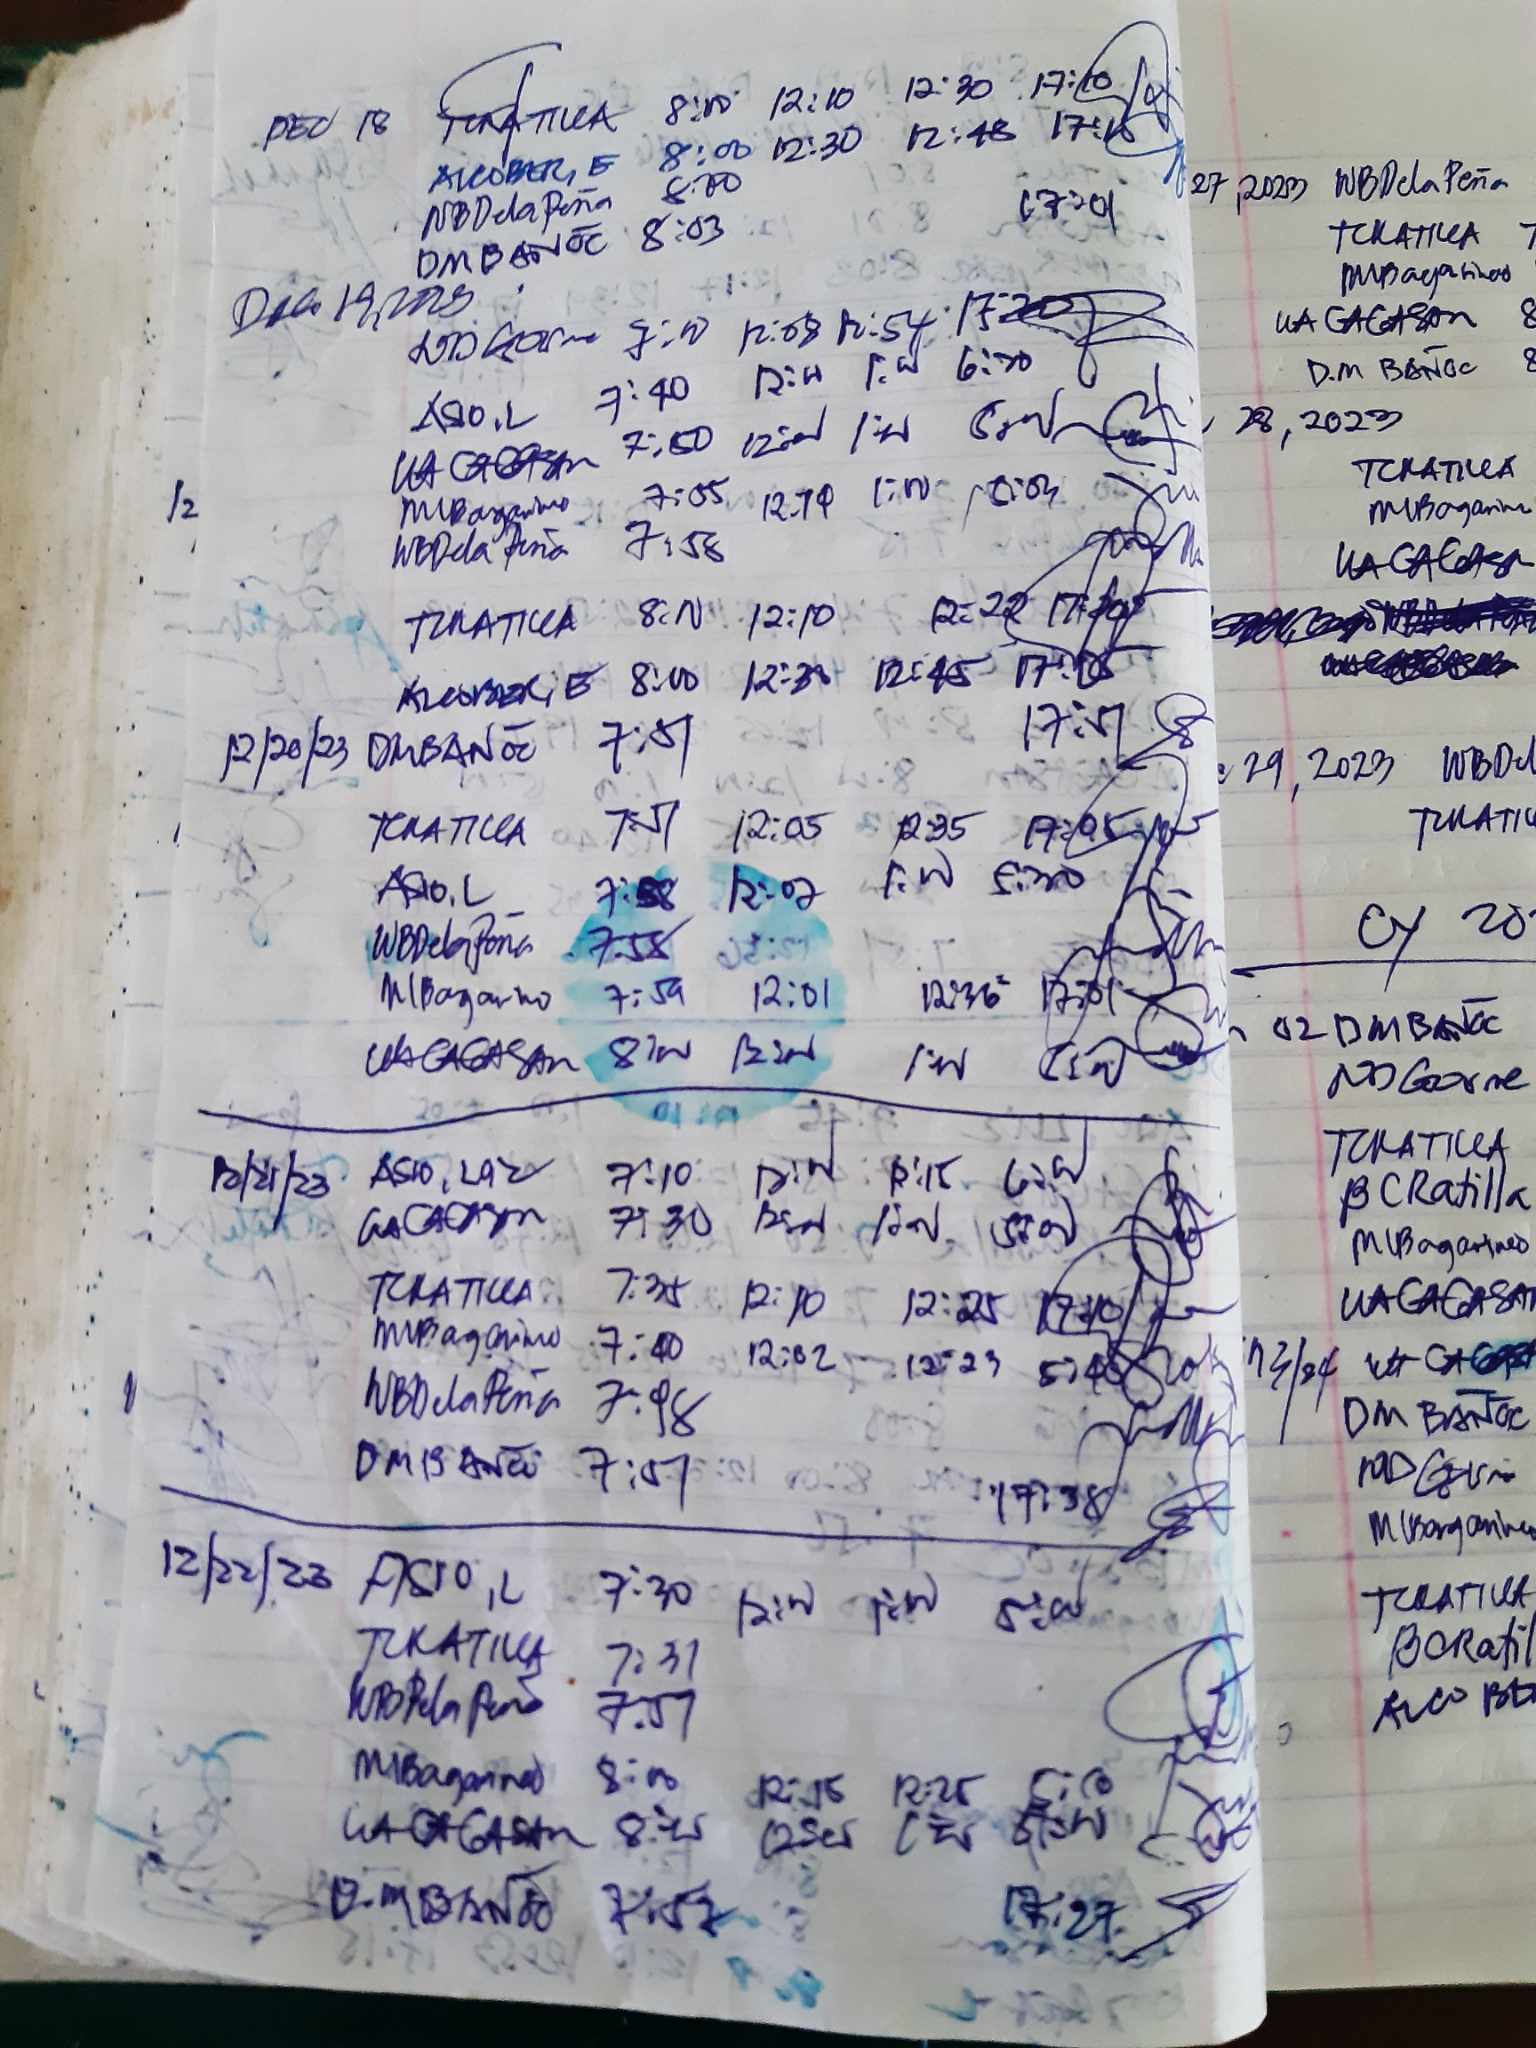 DEC 18 TCRATILLA 8:00 12:10 12:30 17:10
ALCOBER, E 8:00 12:30 12:48 17:10
WBDelaPeña 8:00
DMBAÑOC 8:03 17:01
Dec 19, 2023
7:00 12:08 12:54 17:20
ASIO, L 7:40 12:00 1:00 6:20
UACAGASAN 7:50 12:00 1:00 5:00
MLBagarino 7:05 1:00 5:04
WBDelaPeña 7:58
TCRATILLA 8:00 12:10 12:22
ALCOBER, E 8:00 12:30 12:45 17:05
12/20/23 DMBAÑOC 7:51 17:51
TCRATILLA 7:51 12:05 12:35 17:05
ASIO, L 7:58 12:02 1:00 5:30
WBDelaPeña 7:58
MLBagarino 7:59 12:01 12:36 17:01
UACAGASAN 8:00 12:00 1:00 5:00
12/21/23 ASIO, 7:10 12:00 12:15 6:00
UACAGASAN 7:30 12:00 1:00 5:00
TCRATILLA 7:35 12:10 12:25 17:10
MLBagarino 7:40 12:02 12:23 5:40
WBDelaPeña 7:48
DMBAÑOC 7:51 17:38
12/22/23 ASIO, L 7:30 12:00 1:00 5:00
TCRATILLA 7:31
WBDelaPeña 7:57
MLBagarino 8:00 12:15 12:25 5:10
UACAGASAN 8:00 12:00 1:00 5:00
D.MBAÑOC 7:52 17:27
27, 2023 WBDelaPeña
TCRATILLA
MLBagarino
UACAGASAN 8
D.M BAÑOC 8
28, 2023
TCRATILLA
MLBagarino
UACAGASAN
29, 2023 WBDel
TCRATILL
CY 20
02 DMBAÑOC
TCRATILLA
BCRatilla
MLBagarino
UACAGASAN
3/24 UACAGAS
DMBAÑOC
MLBagarino
TCRATILLA
BCRatil
ALCOBE